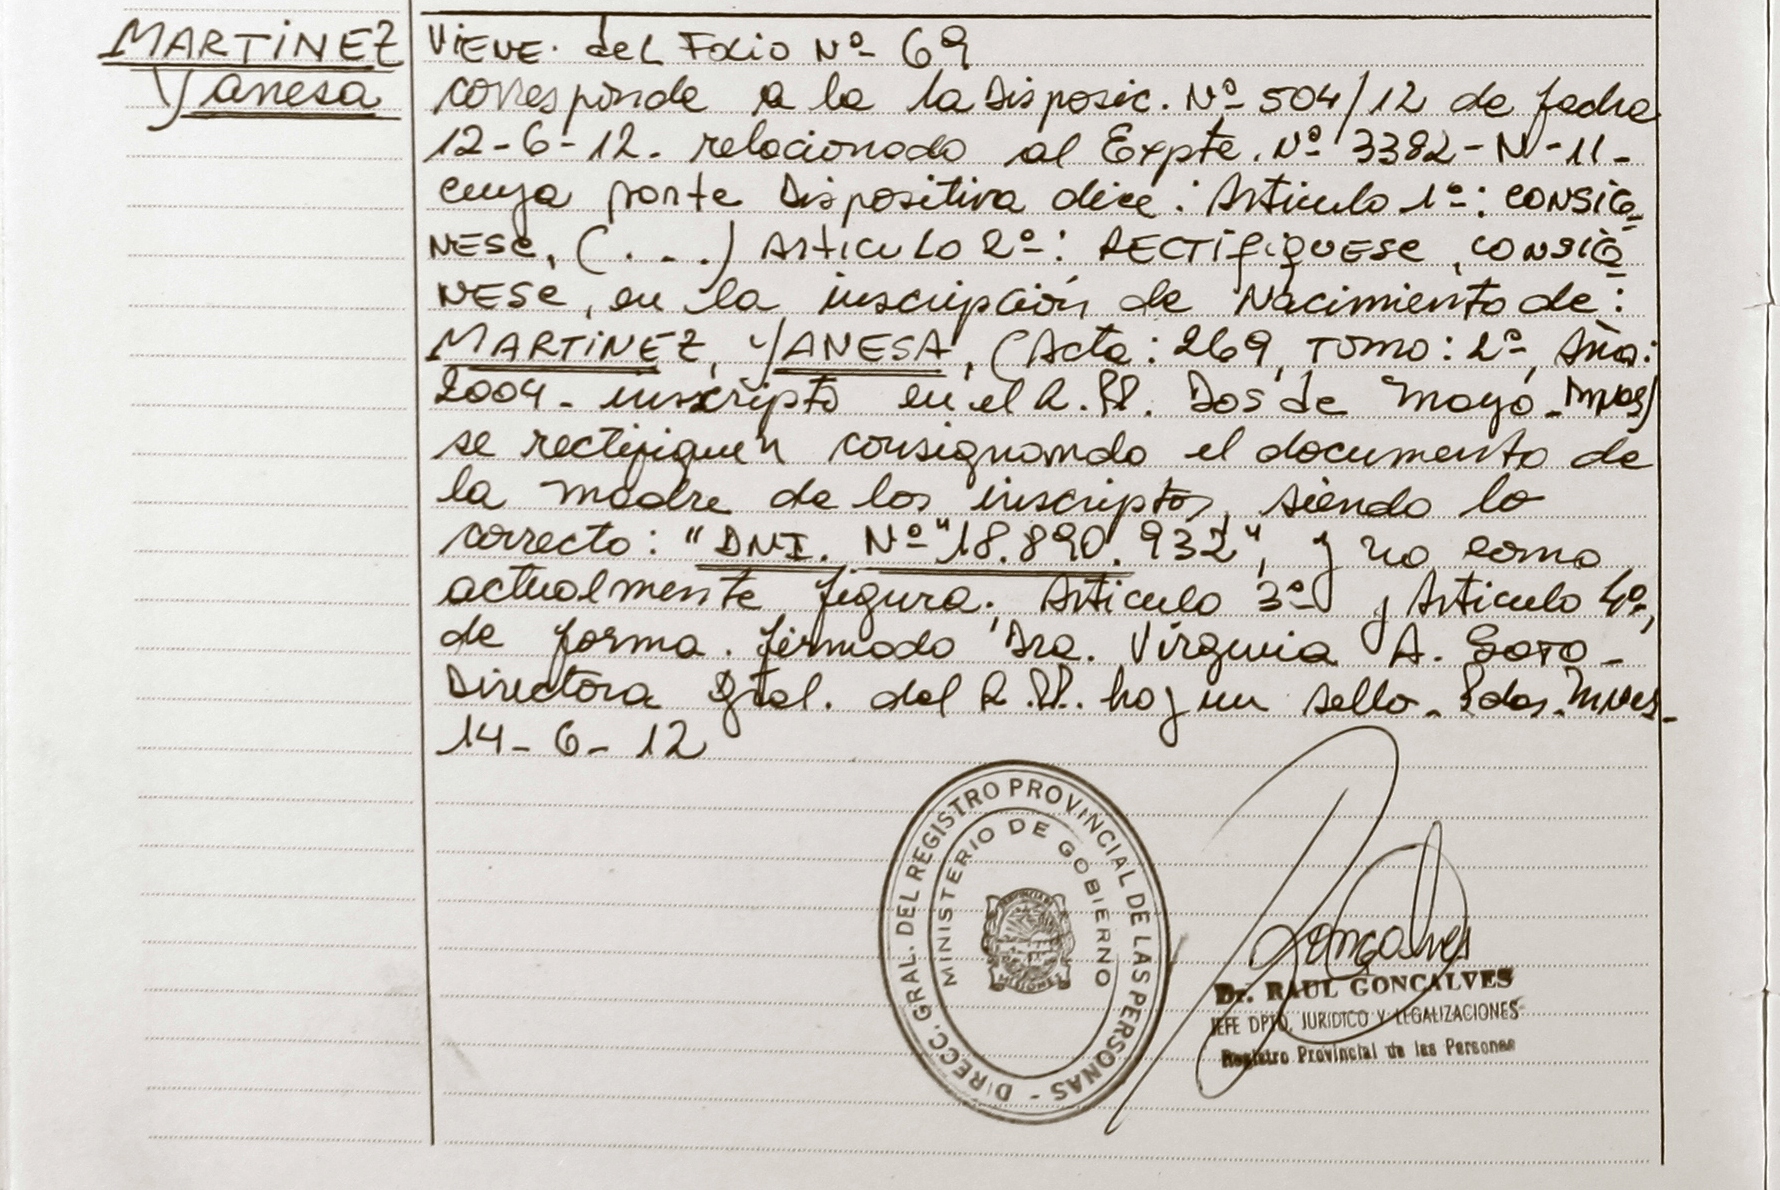 MARTINEZ
Yanesa
VIENE. del Folio Nº 69
corresponde a la la Disposic. Nº 504/12 de fecha
12-6-12. relacionado al Expte. Nº 3382-N-11-
cuya parte Dispositiva dice: Articulo 1º: CONSIG-
NESE, (...) Articulo 2º: RECTIFIQUESE, CONSIG-
NESE, en la inscripción de Nacimiento de:
MARTINEZ, YANESA, (Acta: 269, TOMO: 2º, Año:
2004- inscripto en el R.PP. Dos de Mayo-Mnes)
se rectifiquen consignando el documento de
la madre de los inscriptos, siendo lo
correcto: "DNI. Nº "18.890.932", y no como
actualmente figura; Articulo 3º y Articulo 4º,
de forma. firmado Dra. Virginia A. Soto-
Directora Gral. del R.PP. hay un sello- Pdas. Mnes-
14-6-12
DIRECC. GRAL. DEL REGISTRO PROVINCIAL DE LAS PERSONAS -
MINISTERIO DE GOBIERNO
MISIONES
Goncalves
Dr. RAUL GONCALVES
JEFE DPTO. JURIDICO Y LEGALIZACIONES
Registro Provincial de las Personas